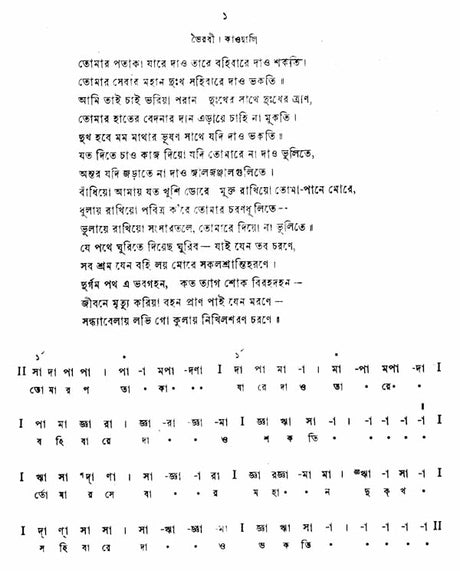 ১
ভৈরবী । কাওয়ালি
তোমার পতাকা যারে দাও তারে বহিবারে দাও শকতি ।
তোমার সেবার মহান দুঃখ সহিবারে দাও ভকতি ॥
আমি তাই চাই ভরিয়া পরান দুঃখের সাথে দুঃখের ত্রাণ,
তোমার হাতের বেদনার দান এড়ায়ে চাহি না মুকতি ।
দুখ হবে মম মাথার ভূষণ সাথে যদি দাও ভকতি ॥
যত দিতে চাও কাজ দিয়ো যদি তোমারে না দাও ভুলিতে,
অন্তর যদি জড়াতে না দাও জালজঞ্জালগুলিতে ।
বাঁধিয়ো আমায় যত খুশি ডোরে মুক্ত রাখিয়ো তোমা-পানে মোরে,
ধুলায় রাখিয়ো পবিত্র ক'রে তোমার চরণধূলিতে--
ভুলায়ে রাখিয়ো সংসারতলে, তোমারে দিয়ো না ভুলিতে ॥
যে পথে ঘুরিতে দিয়েছ ঘুরিব— যাই যেন তব চরণে,
সব শ্রম যেন বহি লয় মোরে সকলশ্রান্তিহরণে ।
দুর্গম পথ এ ভবগহন, কত ত্যাগ শোক বিরহদহন—
জীবনে মৃত্যু করিয়া বহন প্রাণ পাই যেন মরণে—
সন্ধ্যাবেলায় লভি গো কুলায় নিখিলশরণ চরণে ॥
II সা দা পা পা । পা -া মপা -দণা I দা পা মা -া । মা -পা মপা -দা I
তো মা র প তা • কা • • যা রে দা ও তা • রে • •
I পা মা জ্ঞা রা । জ্ঞা -রা জ্ঞা -মা I জ্ঞা ঋা সা -া । -া -া -া -া I
ব হি বা রে দা • • ও শ ক তি • • • • •
I ঋা সা দ্‌া ণ্‌া । সা -জ্ঞা -া রা I জ্ঞা রজ্ঞা মা মা । ঋা -া সা -া I
তো মা র সে বা • • র ম হা • ন দু ক্‌ খ •
I দ্‌া ণ্‌া সা সা । সা -ঋা -জ্ঞা -মা I জ্ঞা ঋা সা -া । -া -া -া -া II
স হি বা রে দা • • ও ভ ক তি • • • • •